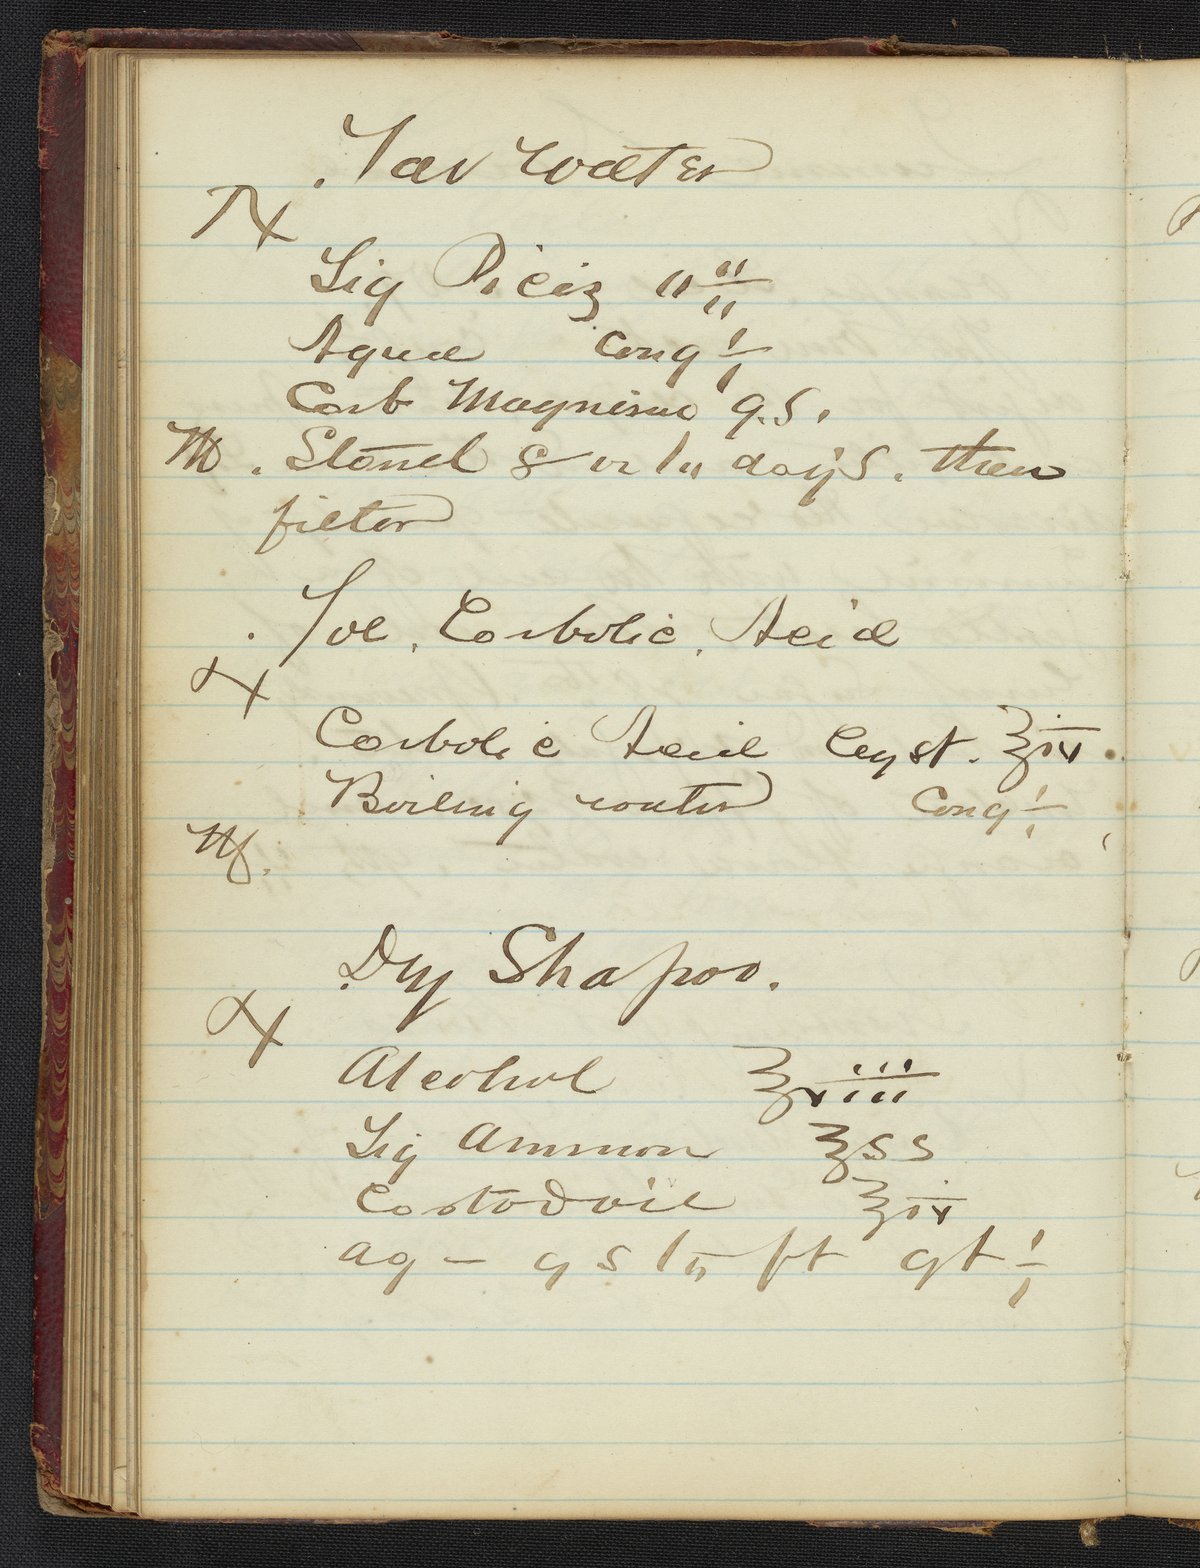 Tar Water
℞
Liq Piciz
Aqua Cong i
Carb Magnesia q.s.
M. Stand 8 or 10 days. then
filter
Sol. Carbolic. Acid
℞
Carbolic Acid Cryst. ℥iv.
Boiling water Cong i
M.
Dry Shapoo.
℞
Alcohol
Liq Ammon ℥ss
Castor oil ℥iv
aq — q s to ft qt i